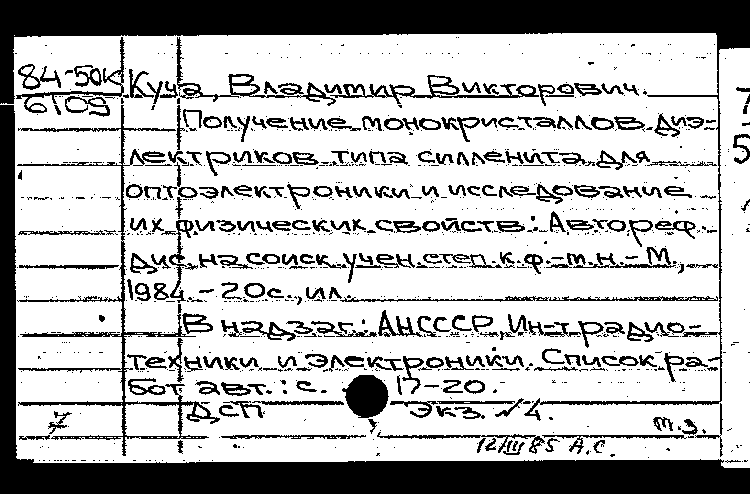 84-50к
6109
Куча, Владимир Викторович.
Получение монокристаллов диэ-
лектриков типа силленита для
оптоэлектроники и исследование
их физических свойств: Автореф.
дис. на соиск учен. степ. к.ф.-м.н. - М.,
1984. - 20с., ил.
В надзаг.: АНСССР, Ин-т радио-
техники и электроники. Список ра-
бот авт.: с. 17-20.
ДСП Экз. №4.
т.з.
12/III 85 А.С.
7
5